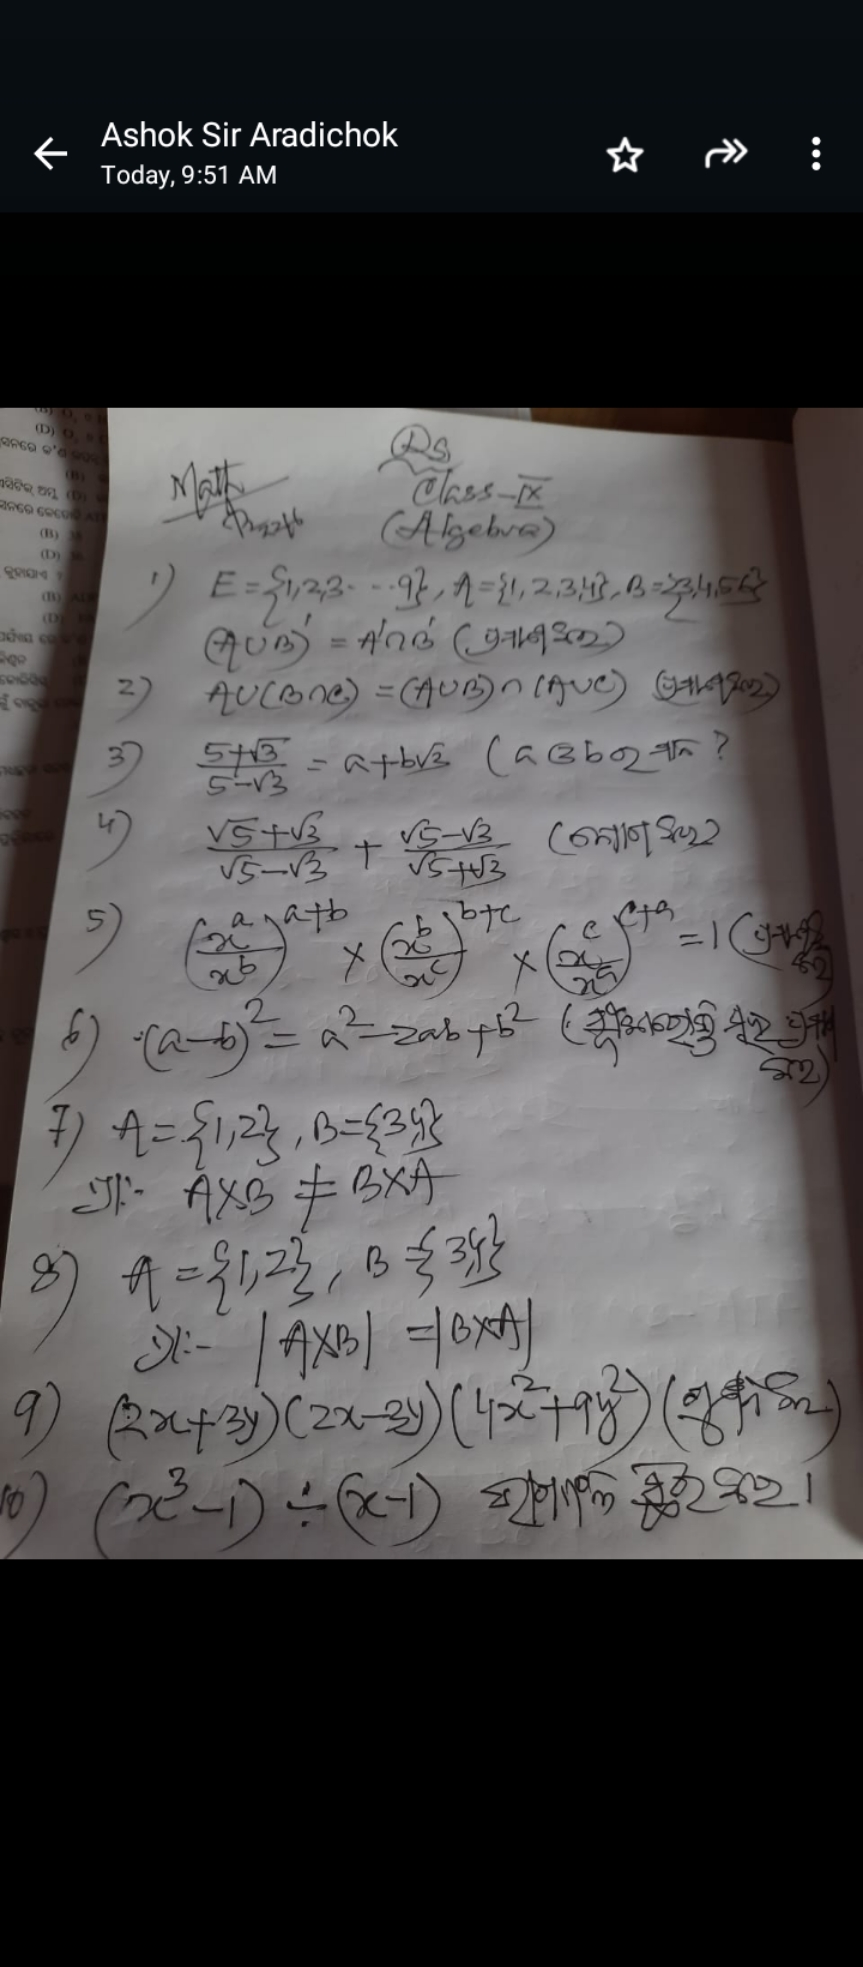 Ashok Sir Aradichok
Today, 9:51 AM
Qs
Math
Class-IX
(Algebra)
1) E={1,2,3...9}, A={1,2,3,4}, B={3,4,5,6}
(A∪B)' = A'∩B' (ପ୍ରମାଣ କର)
2) A∪(B∩C) = (A∪B)∩(A∪C) (ପ୍ରମାଣ କର)
3) (5+√3)/(5-√3) = a+b√3 (a ଓ b ର ମାନ ?
4) (√5+√3)/(√5-√3) + (√5-√3)/(√5+√3) (ଯୋଗ କର)
5) (x^a/x^b)^(a+b) × (x^b/x^c)^(b+c) × (x^c/x^a)^(c+a) = 1 (ପ୍ରମାଣ କର
6) (a-b)² = a²-2ab+b² (
କର)
7) A={1,2}, B={3,4}
ପ୍ରା:- A×B ≠ B×A
8) A={1,2}, B={3,4}
ପ୍ରା:- |A×B| =|B×A|
9) (2x+3y)(2x-3y)(4x²+9y²) (ଗୁଣନ କର)
10) (x³-1) ÷ (x-1) ଭାଗଫଳ ସ୍ଥିର କର।